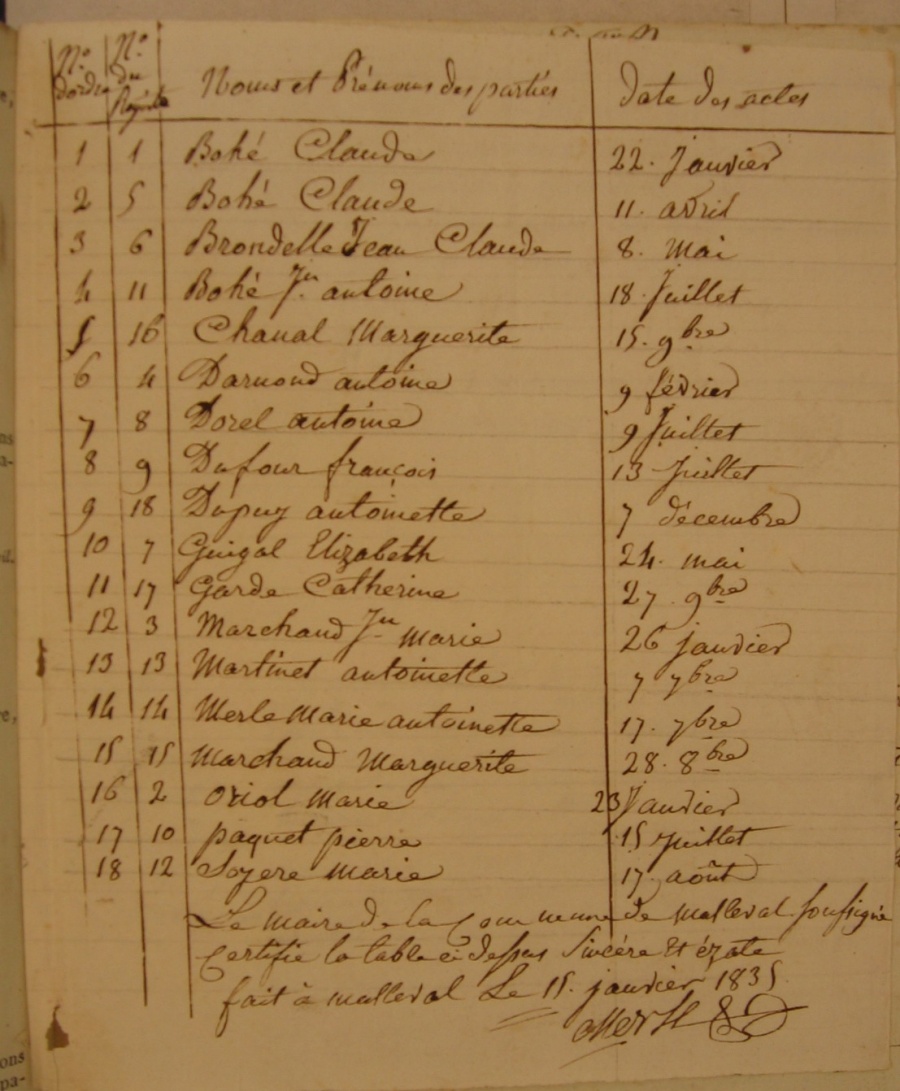 N.o d'ordre N.o du Registre Noms et Prénoms des parties date des actes
1 1 Bohé Claude 22. Janvier
2 5 Bohé Claude 11. avril
3 6 Brondelle Jean Claude 8. mai
4 11 Bohé Jn. antoine 18. Juillet
5 16 Chanal Marguerite 15. 9bre
6 4 Darnond antoine 9 février
7 8 Dorel antoine 9 Juillet
8 9 Dufour françois 13 Juillet
9 18 Dupuy antoinette 7 décembre
10 7 Guigal Elizabeth 24. mai
11 17 Garde Catherine 27. 9bre
12 3 Marchand Jn marie 26 janvier
13 13 Martinet antoinette 7 7bre
14 14 Merle Marie antoinette 17. 7bre
15 15 Marchand Marguerite 28. 8bre
16 2 oriol marie 23 Janvier
17 10 paquet pierre 15 Juillet
18 12 Soyere marie 17 août
Le maire de la Commune de malleval soussigné
Certifie la table ci dessus Sincère et éxate
fait à malleval Le 15. janvier 1835